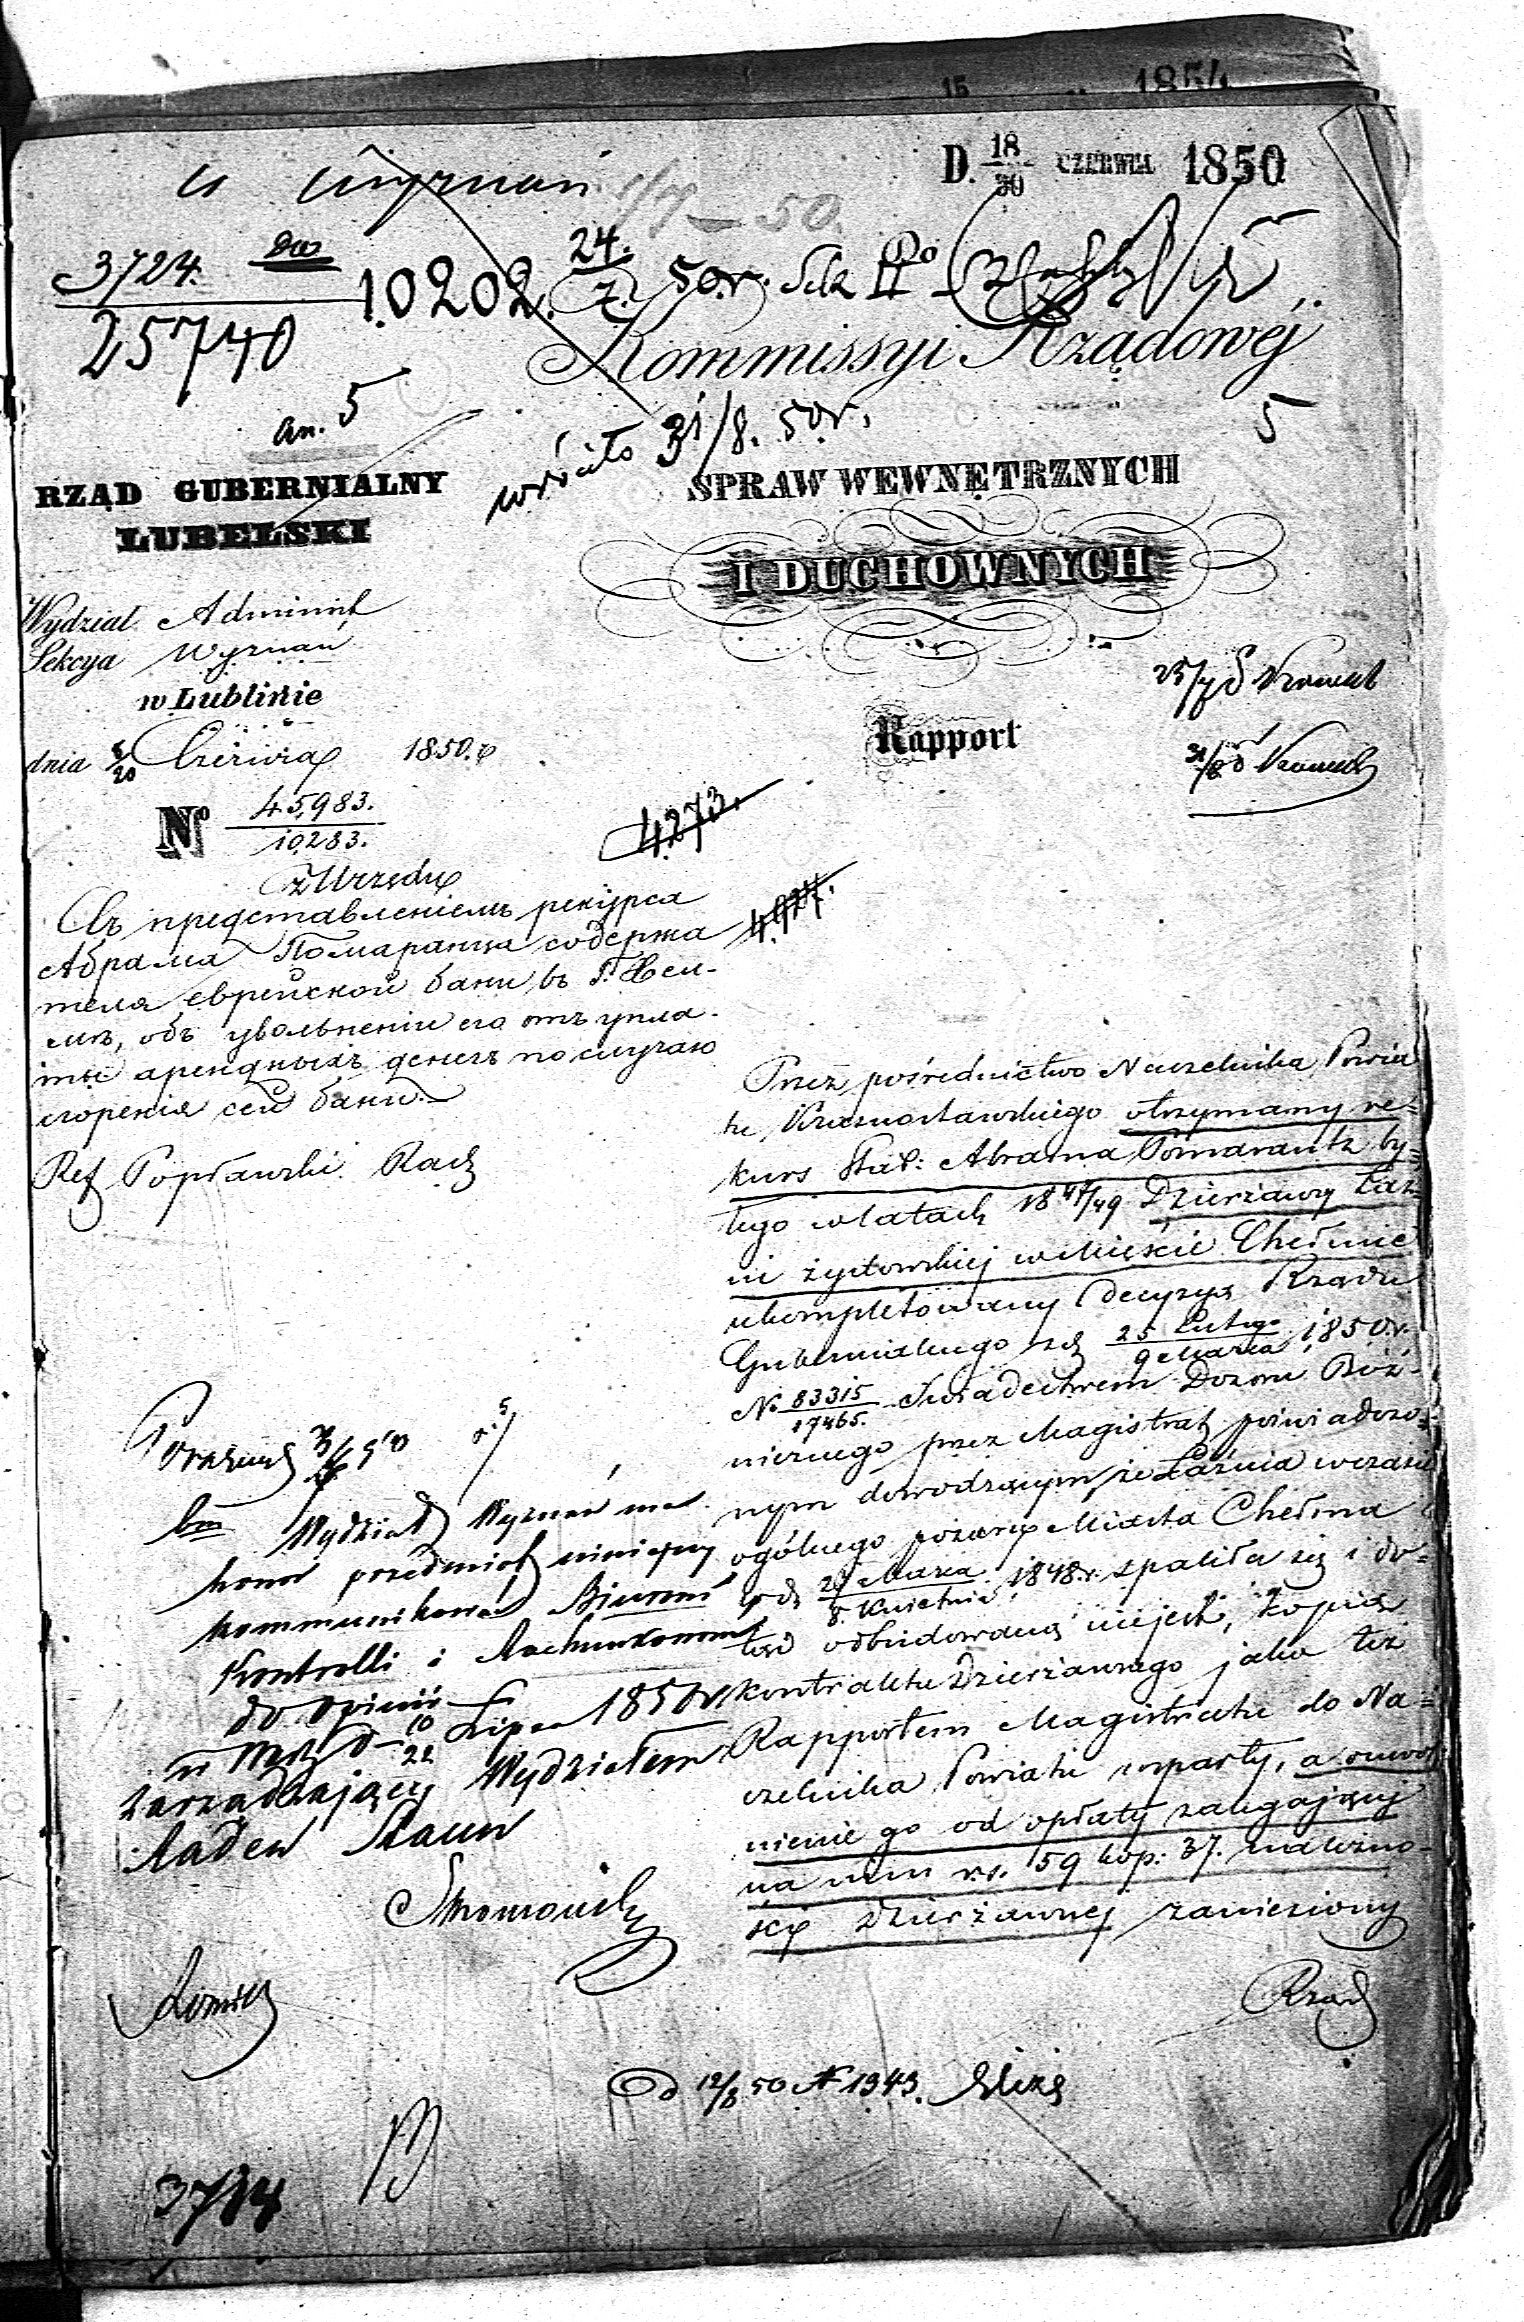 15 1854
D. 18/30 CZERWCA 1850
Wyznań
1/7 – 50.
3724.
25740
10202. 24./7. 50 r. Sek II
Kommissyi Rządowéj
an. 5
wróciło 31/8. 50 r.
5
RZĄD GUBERNIALNY
LUBELSKI
SPRAW WEWNĘTRZNYCH
I DUCHOWNYCH
Wydział Administ
Sekcya Wyznań
w Lublinie
dnia 8/20 Czerwca 1850. r
Rapport
No 45,983.
10283.
z Urzędu
4273.
4927.
Съ представленіемъ рекурса
Абрама Помаранца содержа
теля еврейской бани въ Г. Хел-
мѣ, объ увольненіи его отъ упла-
ты арендныхъ денегъ по случаю
сгоренія сей бани.
Ref Popławski Radz
Przez pośrednictwo Naczelnika Powia
tu Krasnostawskiego otrzymamy re-
kurs Star: Abrama Pomarantz by-
łego w latach 1847/49 Dzierżawcy Łaz-
ni żydowskiej w Mieście Chełmie
ukompletowany decyzyą Rządu
Gubernialnego z d 25 Lutego/9 Marca 1850 r.
No 83315/17465. Świadectwem Dozoru Bóż-
niczego przez Magistrat poświadczo-
nym dowodzącym, że Łaźnia w czasie
ogólnego pożaru Miasta Chełma
w d. 27 Marca/8. Kwietnia 1848 r. spaliła się i do-
tąd odbudowaną niejest, kopią
kontraktu Dzierżawnego jako też
Rapportem Magistratu do Na-
czelnika Powiatu wsparty, a o uwol-
nienie go od opłaty zalegającej
na nim r.s. 59 kop: 37. należno-
ści Dzierżawnej zaniesiony
Rząd
Wydział Wyznań ma
honor przedmiot niniejszy
kommunikować Biurowi
Kontrolli i Rachunkowości
do opinii
w Warsz d 10/22 Lipca 1850 r
Zarządzający Wydziałem
Radca Stanu
Od 12/8 50 N 1343.
3724